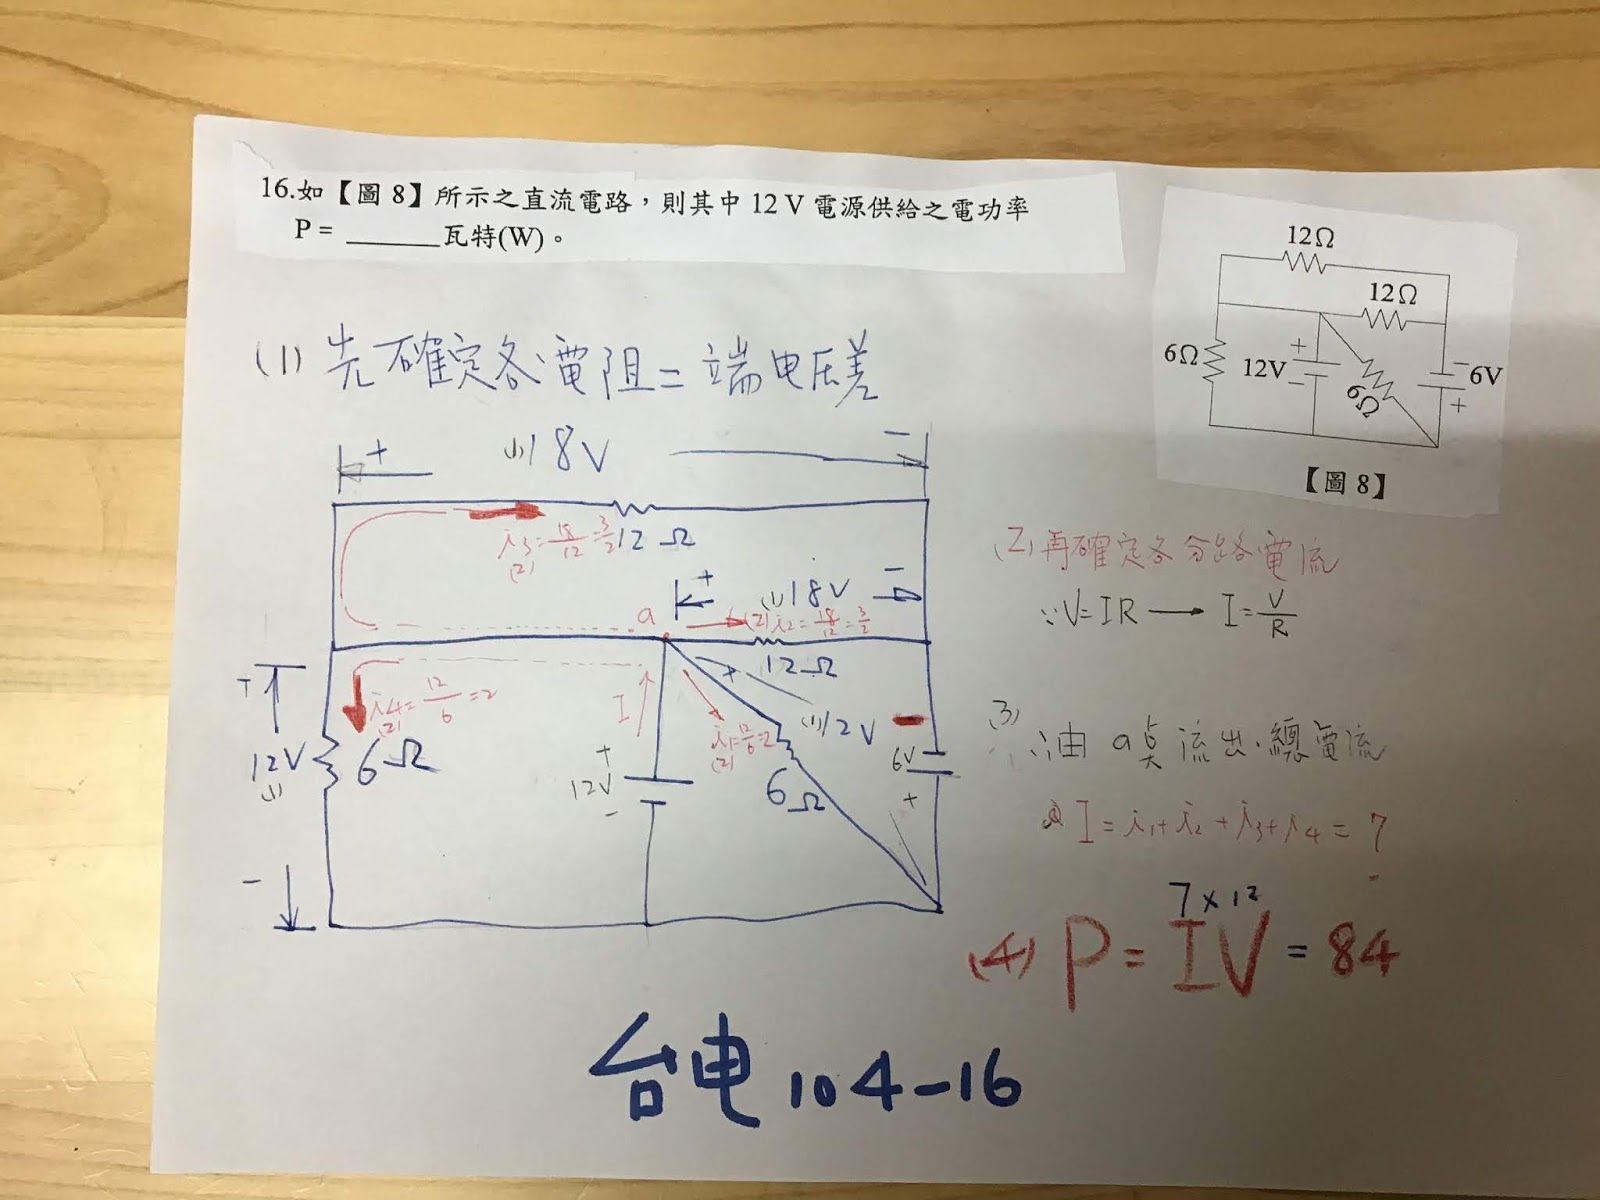 16.如【圖 8】所示之直流電路，則其中 12 V 電源供給之電功率
P = ______瓦特(W)。
12Ω
12Ω
6Ω
+
12V
−
6Ω
−
6V
+
【圖 8】
(1) 先確定各電阻二端电压差
+
(1)18V
−
i3=18/12=3/2
(2)
12Ω
+
(1)18V
−
a
(2)i2=18/12=3/2
12Ω
+
12V
(1)
−
6Ω
i4=12/6=2
(2)
I
+
12V
−
i1=12/6=2
(2)
+
(1)12V
−
6Ω
6V
+
(2)再確定各分路電流
∵V=IR → I=V/R
(3)
∴由a点流出總電流
I=i1+i2+i3+i4=7
7×12
(4) P=IV=84
台电104-16